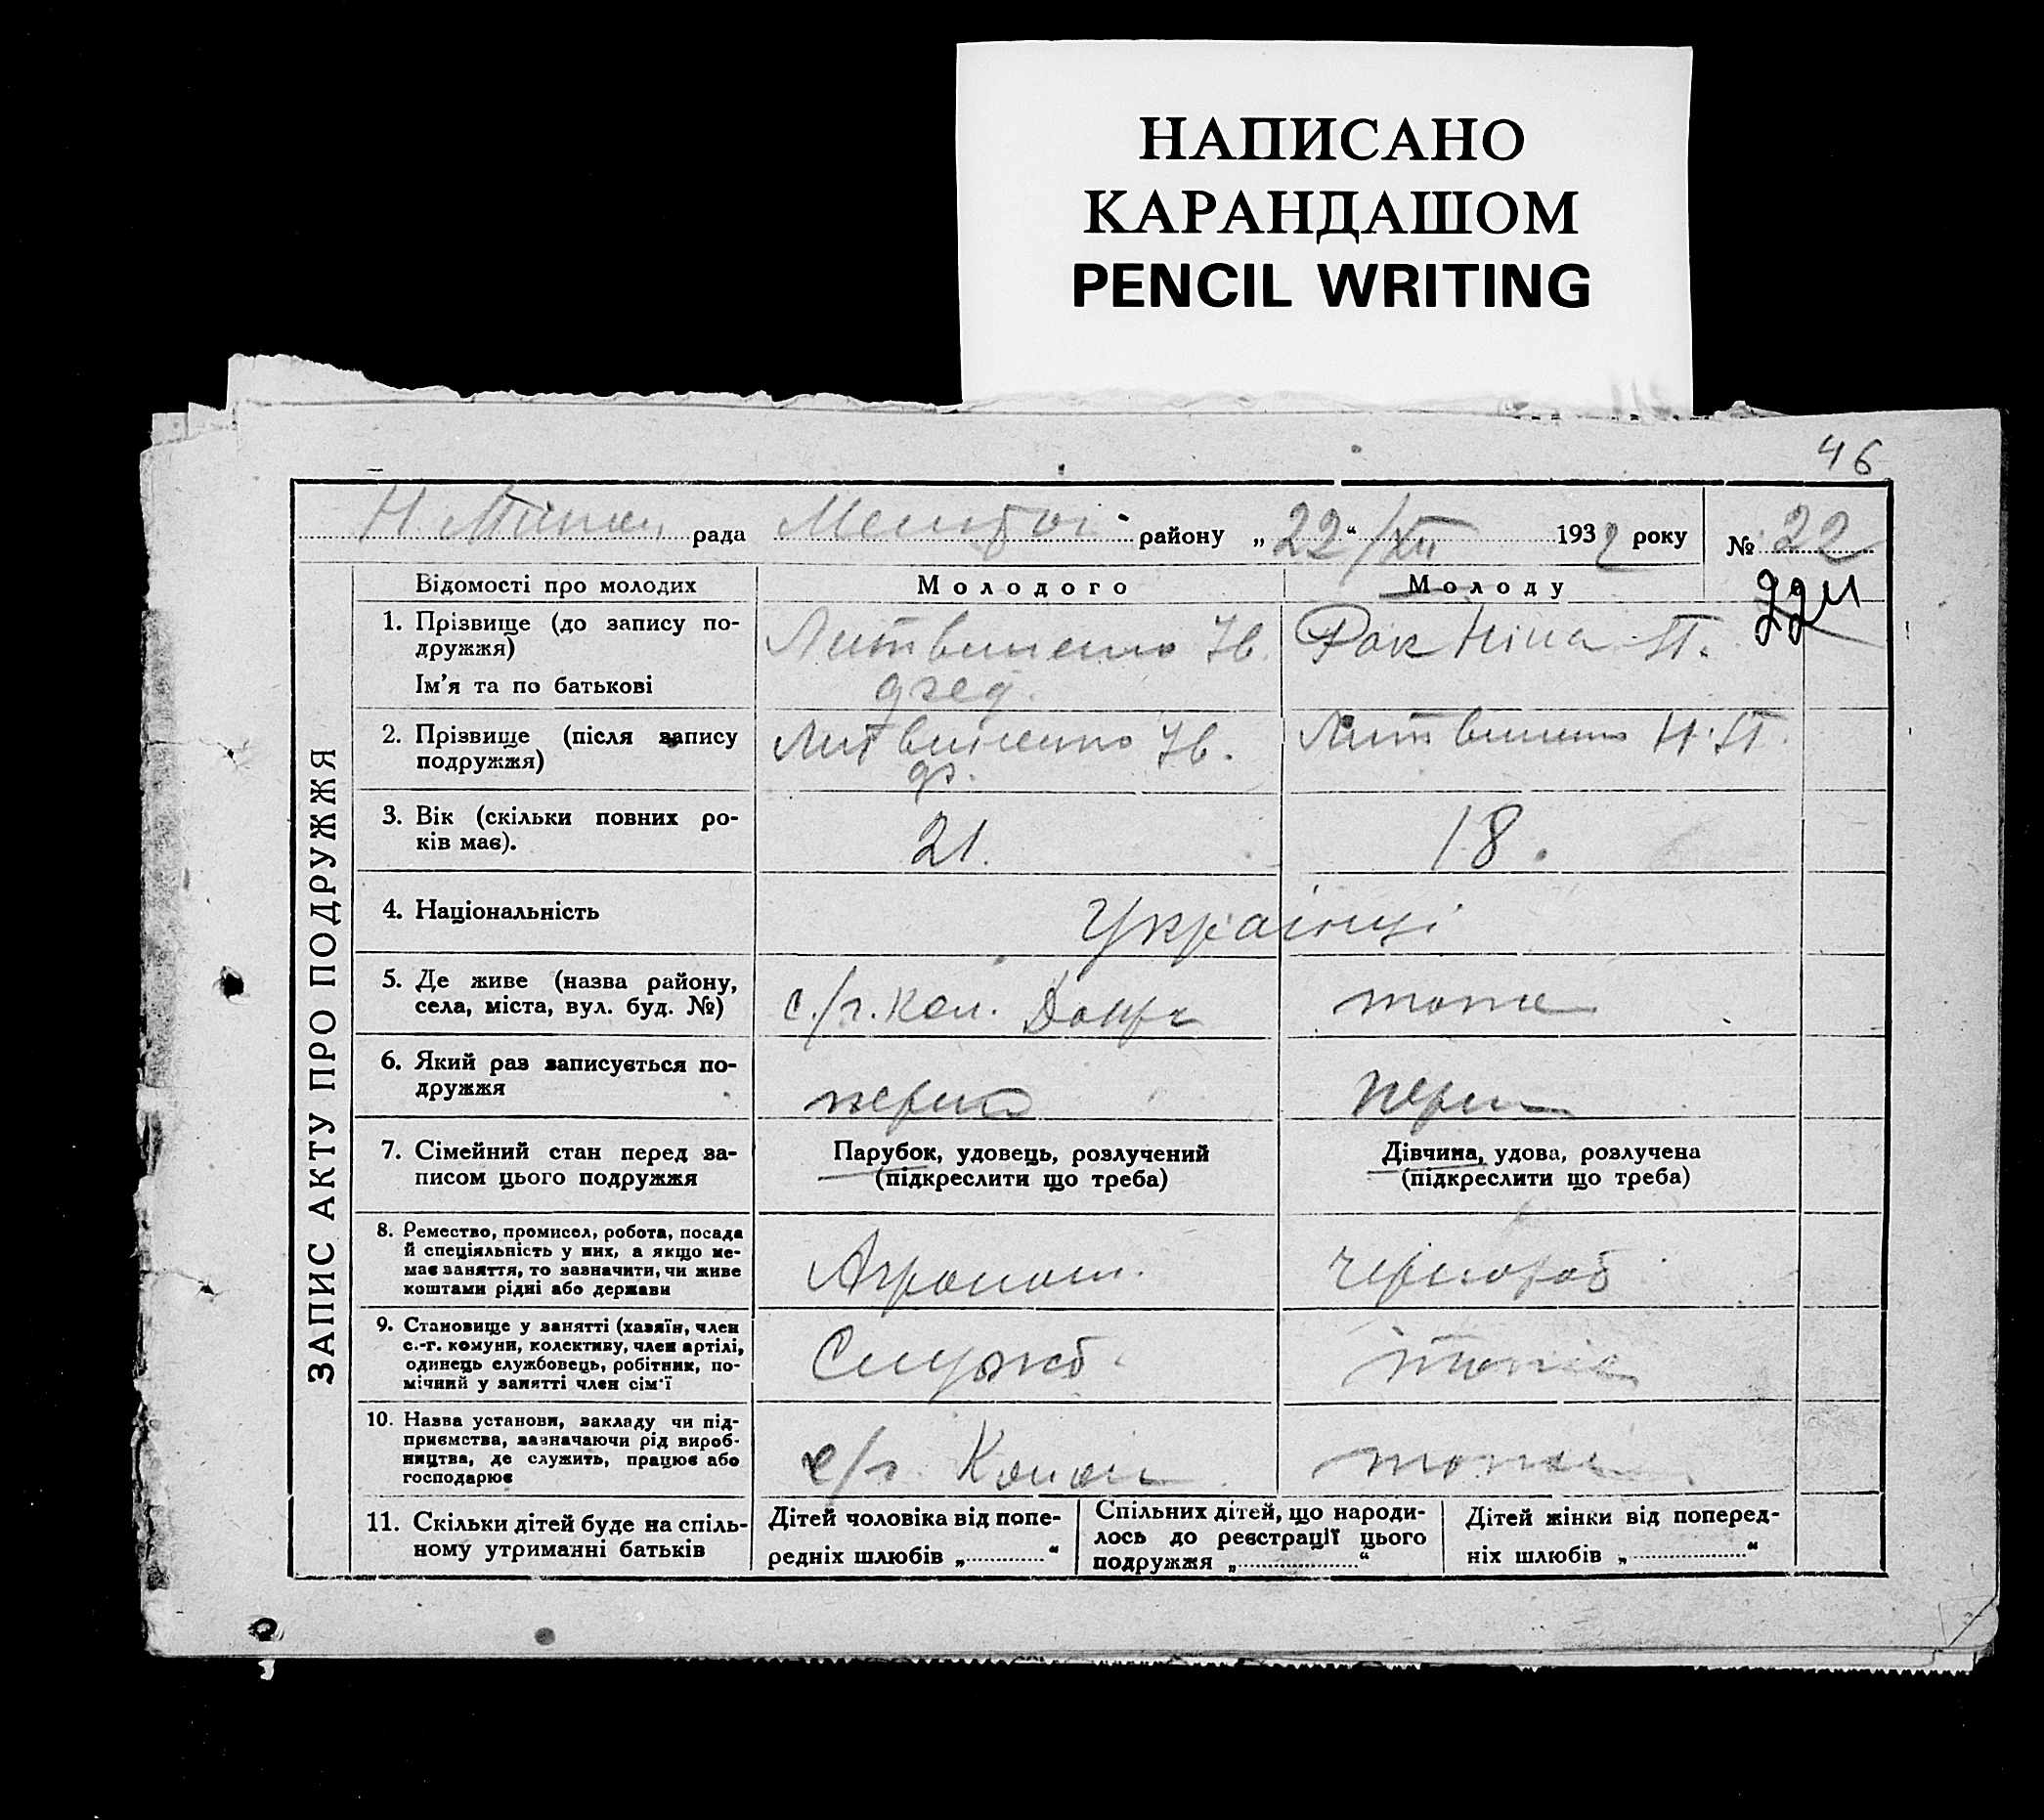 НАПИСАНО
КАРАНДАШОМ
PENCIL WRITING
46
рада району „22“/XII 1932 року № 22
Відомості про молодих Молодого Молоду
ЗАПИС АКТУ ПРО ПОДРУЖЖЯ
1. Прізвище (до запису по-
дружжя)
Ім’я та по батькові
Литвиненко Ів.
Рак Ніна П.
2. Прізвище (після запису
подружжя)
Литвиненко Ів.
Литвиненко Н. П.
3. Вік (скільки повних ро-
ків має).
21.
18.
4. Національність
Українці
5. Де живе (назва району,
села, міста, вул. буд. №)
с./г. кол.
тоже
6. Який раз записується по-
дружжя
перш
перш
7. Сімейний стан перед за-
писом цього подружжя
Парубок, удовець, розлучений
(підкреслити що треба)
Дівчина, удова, розлучена
(підкреслити що треба)
8. Ремество, промисел, робота, посада
й спеціяльність у них, а якщо не-
має заняття, то зазначити, чи живе
коштами рідні або держави
Агроном.
чорнороб
9. Становище у занятті (хазяїн, член
с.-г. комуни, колективу, член артілі,
одинець службовець, робітник, по-
мічний у занятті член сім’ї
Служб.
тоже
10. Назва установи, закладу чи під-
приємства, зазначаючи рід вироб-
ництва, де служить, працює або
господарює
с/г
тоже
11. Скільки дітей буде на спіль-
ному утриманні батьків
Дітей чоловіка від попе-
редніх шлюбів „ “
Спільних дітей, що народи-
лось до реєстрації цього
подружжя „ “
Дітей жінки від поперед-
ніх шлюбів „ “